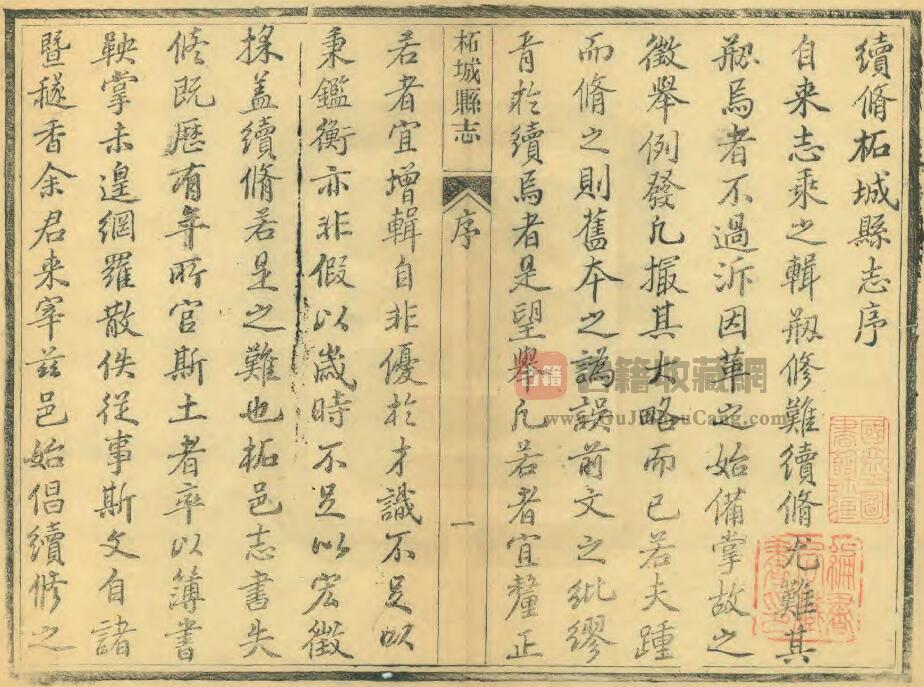 續脩柘城縣志序
自来志乘之輯剏修難續脩尤難其
剏焉者不過泝因革之始備掌故之
徵舉例發凡撮其大略而已若夫踵
而脩之則舊本之譌誤前文之紕繆
胥於續焉者是望舉凡若者宜釐正
柘城縣志
序
一
若者宜增輯自非優於才識不足以
秉鑑衡亦非假以歲時不足以宏徵
採盖續脩若是之難也柘邑志書失
修既歷有年所官斯土者卒以簿書
鞅掌未遑網羅散佚從事斯文自諸
暨鐩香余君来宰茲邑始倡續修之
古籍收藏網
www.GuJiShouCang.com